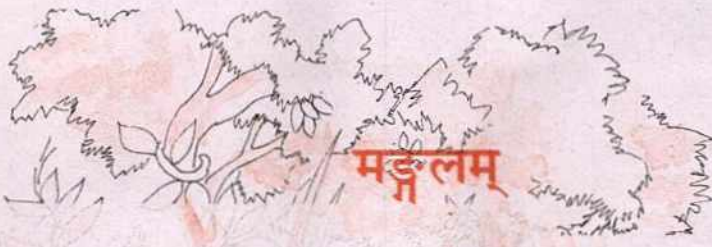 मङ्गलम्